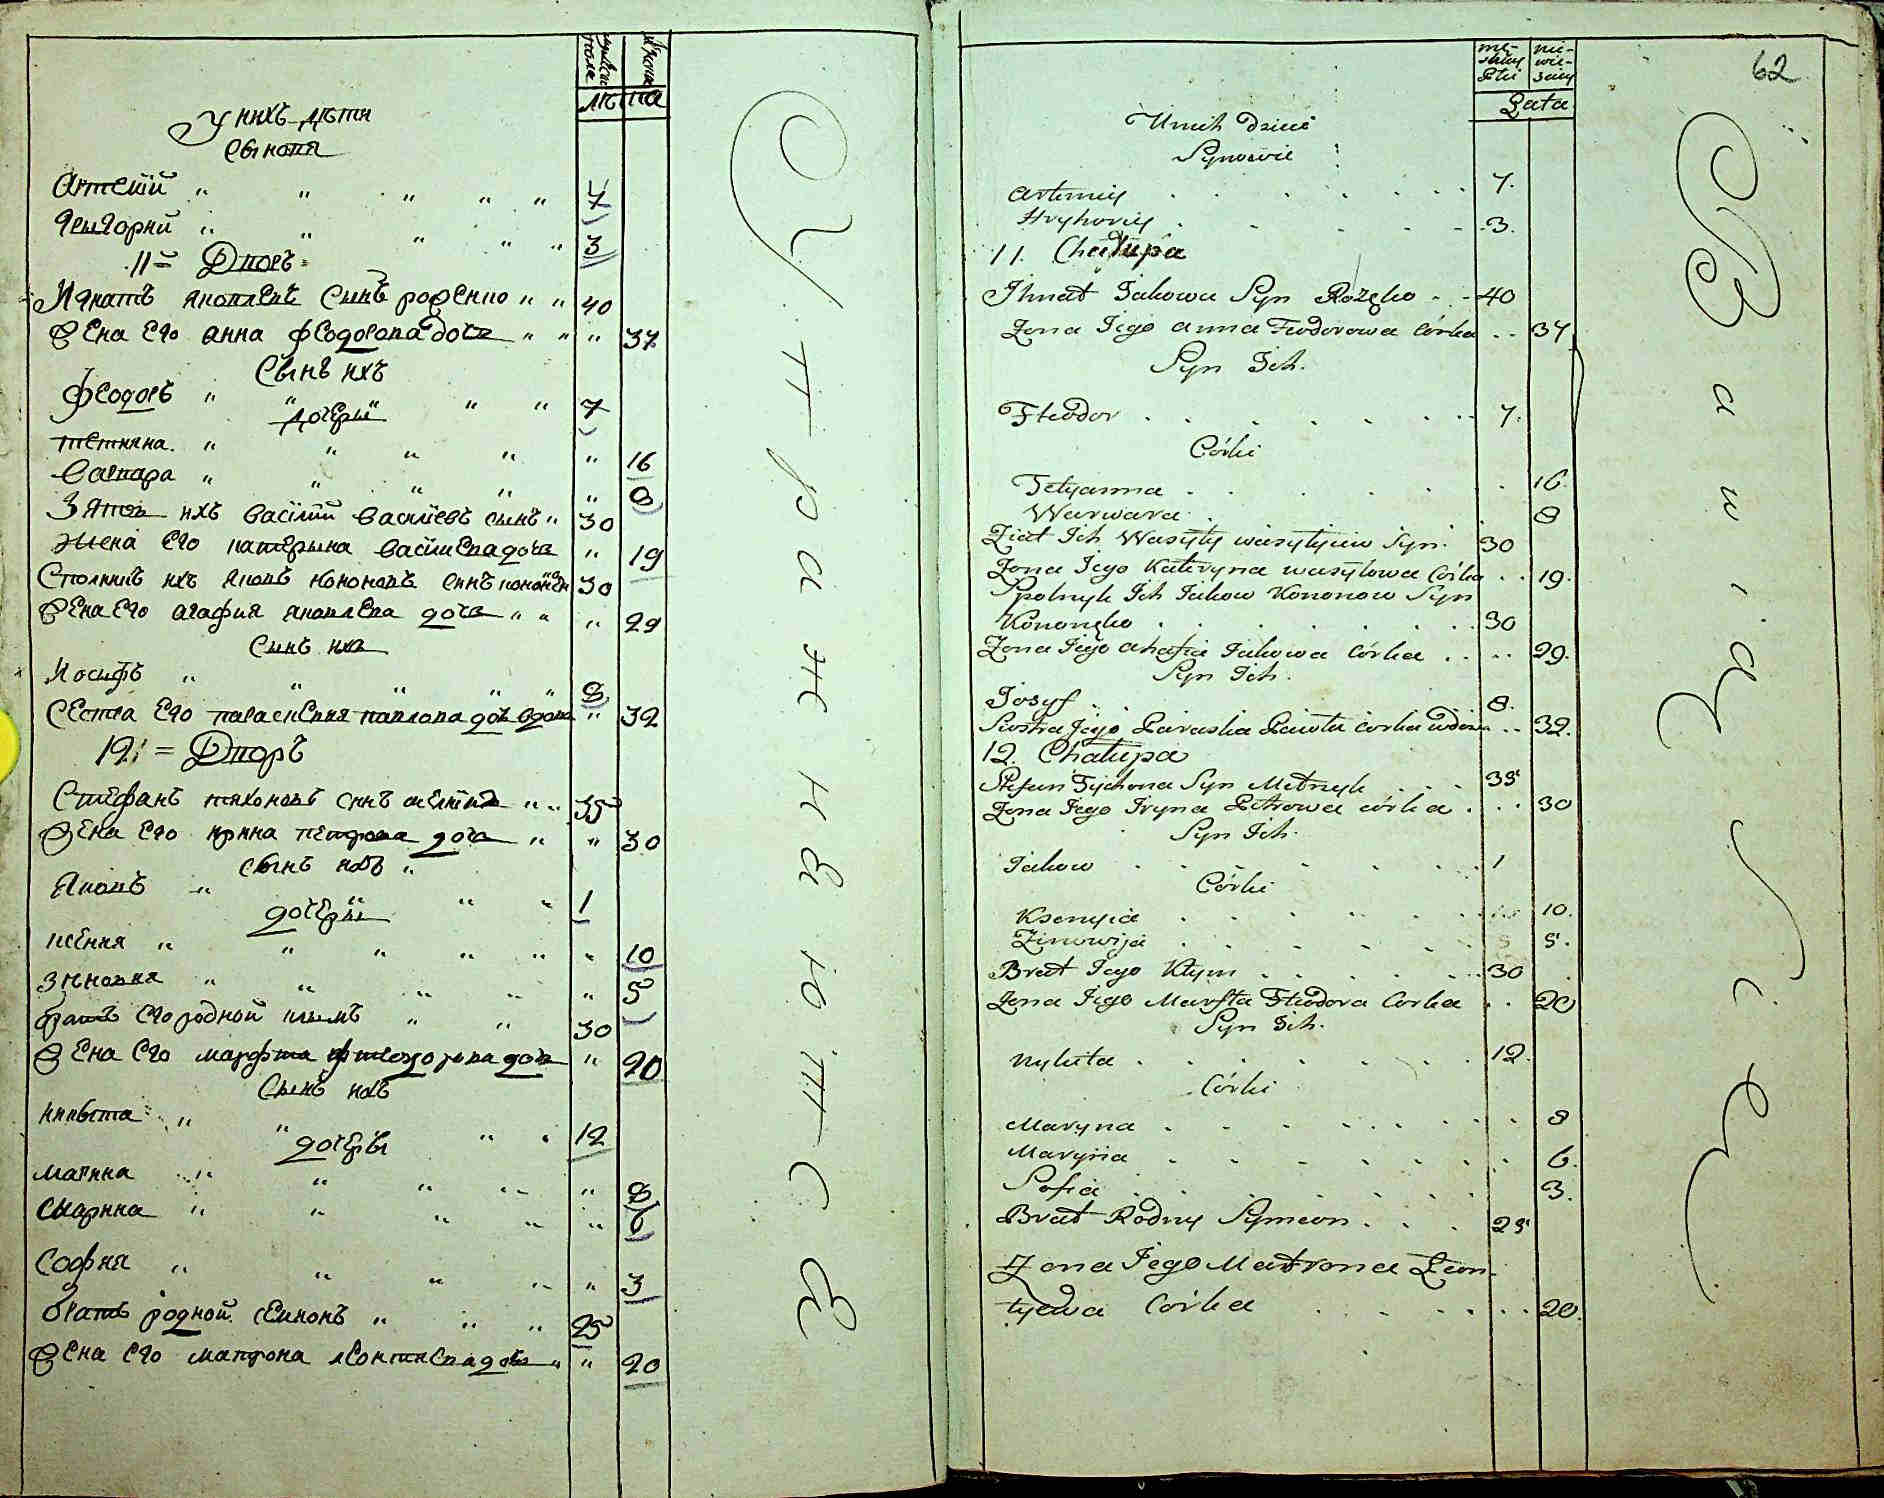 мужеска пола
женска
лѣта
У нихъ дѣти
Сыновя
Артемій " " " " " 7
Григорий " " " " " 3
11 = Дворъ
Игнатъ яковлевъ Сынъ роженко " " 40
Жена Его анна феодорова дочь " " " 37
Сынъ ихъ
феодоръ " " " " 7
дочери
тетияна " " " " " 16
Варвара " " " " " 8
Зять ихъ Василий Василиевъ сынъ " 30
жена Его катерына василева дочь " 19
Сполникъ ихъ Яковъ кононовъ сынъ кононенко 30
Жена Его агафия яковлева дочь " " " 29
Сынъ ихъ
Иосифъ " " " " " 8
Сестра Его параскевия павлова дочь вдова " 32
12 = Дворъ
Стефанъ тихоновъ синъ мелникъ " " 35
Жена Его ирина петрова дочь " " 30
сынъ ихъ "
Яковъ " " " 1
дочери
ксения " " " " " " 10
зиновия " " " " " 5
братъ Его родной климъ " " 30
Жена Его марфта фтеодорова дочь " 20
Сынъ ихъ
никыта " " " " 12
дочери
марина " " " " " 8
Марина " " " " " 6
София " " " " " 3
братъ родной симионъ " " " 25
Жена Его матрона леонтиева дочь " " 20
У п р а ж н Е ю т с Е
męskiey Płci
niewieściey
62
Lata
U nich Dzieci
Synowie
Artemiy 7.
Hryhoriy 3.
11. Chałupa
Ihnat Jakowa Syn Rożęko 40
Zona Jego Anna Fteodorowa Córka 37
Syn Ich.
Fteodor 7.
Córki
Tetyanna 16.
Warwara 8
Ziat Ich Wasyly wasylyiew Syn 30
Zona Jego Kateryna wasylowa Córka 19.
Spolnyk Ich Jakow Kononow Syn
Kononęko 30
Zona Jego Ahafia Jakowa Córka 29.
Syn Ich.
Josyf 8.
Siostra Jego Paraska Pawła Córka wdowa 32.
12. Chałupa
Stefan Tychona Syn Melnyk 35
Zona Jego Iryna Petrowa córka 30
Syn Ich.
Jakow 1
Córki
Ksenyia 10.
Zinowija 5.
Brat Jego Kłym 30
Zona Jego Marfta Fteodora Corka 20
Syn Ich.
Nykita 12.
Córki
Maryna 8
Maryna 6.
Sofia 3.
Brat Rodny Symeon 25
Zona Jego Matrona Leon-
tyewa Corka 20.